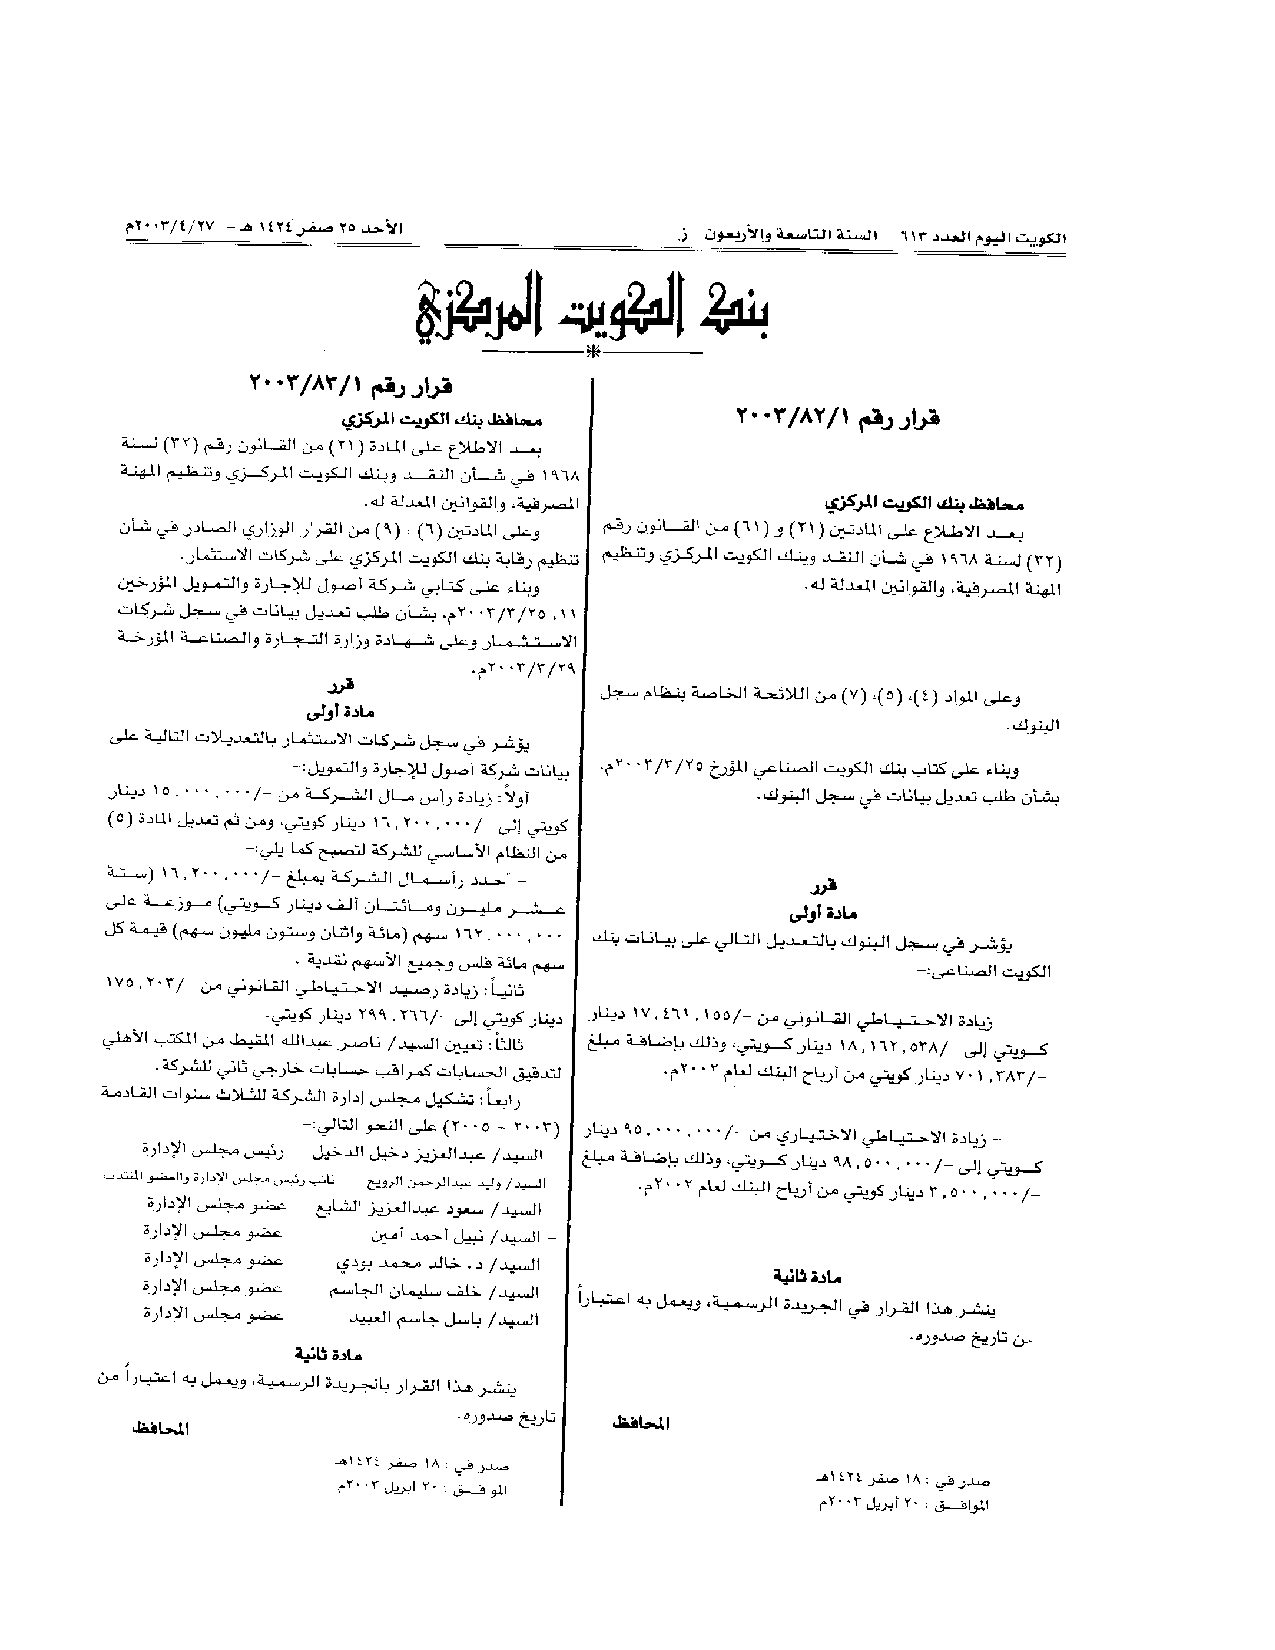 الكويت اليوم العدد ٦١٣ السنة التاسعة والأربعون ز.
الأحد ٢٥ صفر ١٤٢٤ هـ - ٢٠٠٣/٤/٢٧م
بنك الكويت المركزي
قرار رقم ٢٠٠٣/٨٢/١
محافظ بنك الكويت المركزي
بعد الاطلاع على المادتين (٢١) و (٦١) من القانون رقم
(٣٢) لسنة ١٩٦٨ في شأن النقد وبنك الكويت المركزي وتنظيم
المهنة المصرفية، والقوانين المعدلة له.
وعلى المواد (٤)، (٥)، (٧) من اللائحة الخاصة بنظام سجل
البنوك.
وبناء على كتاب بنك الكويت الصناعي المؤرخ ٢٠٠٣/٣/٢٥م.
بشأن طلب تعديل بيانات في سجل البنوك.
قرر
مادة أولى
يؤشر في سجل البنوك بالتعديل التالي على بيانات بنك
الكويت الصناعى:-
زيادة الاحتياطي القانوني من -/١٧,٤٦١,١٥٥ دينار
كويتي إلى /١٨,١٦٢,٥٣٨ دينار كويتي، وذلك بإضافة مبلغ
-/٧٠١,٣٨٣ دينار كويتي من أرباح البنك لعام ٢٠٠٢م.
- زيادة الاحتياطي الاختياري من -/٩٥,٠٠٠,٠٠٠ دينار
كويتي إلى -/٩٨,٥٠٠,٠٠٠ دينار كويتي، وذلك بإضافة مبلغ
-/٣,٥٠٠,٠٠٠ دينار كويتي من أرباح البنك لعام ٢٠٠٢م.
مادة ثانية
ينشر هذا القرار في الجريدة الرسمية، ويعمل به اعتباراً
من تاريخ صدوره.
المحافظ
صدر في : ١٨ صفر ١٤٢٤هـ
الموافق : ٢٠ أبريل ٢٠٠٣م
قرار رقم ٢٠٠٣/٨٣/١
محافظ بنك الكويت المركزي
بعد الاطلاع على المادة (٢١) من القانون رقم (٣٢) لسنة
١٩٦٨ في شأن النقد وبنك الكويت المركزي وتنظيم المهنة
المصرفية، والقوانين المعدلة له.
وعلى المادتين (٦) ، (٩) من القرار الوزاري الصادر في شأن
تنظيم رقابة بنك الكويت المركزي على شركات الاستثمار.
وبناء على كتابي شركة أصول للإجارة والتمويل المؤرخين
١١، ٢٠٠٣/٣/٢٥م، بشأن طلب تعديل بيانات في سجل شركات
الاستثمار وعلى شهادة وزارة التجارة والصناعة المؤرخة
٢٠٠٣/٣/٢٩م.
قرر
مادة أولى
يؤشر في سجل شركات الاستثمار بالتعديلات التالية على
بيانات شركة أصول للإجارة والتمويل:-
أولاً: زيادة رأس مال الشركة من -/١٥,٠٠٠,٠٠٠ دينار
كويتي إلى /١٦,٢٠٠,٠٠٠ دينار كويتي، ومن ثم تعديل المادة (٥)
من النظام الأساسي للشركة لتصبح كما يلي:-
- حدد رأسمال الشركة بمبلغ -/١٦,٢٠٠,٠٠٠ (ستة
عشر مليون ومائتان ألف دينار كويتي) موزعة على
١٦٢,٠٠٠,٠٠٠ سهم (مائة واثنان وستون مليون سهم) قيمة كل
سهم مائة فلس وجميع الأسهم نقدية .
ثانياً: زيادة رصيد الاحتياطي القانوني من /١٧٥,٢٠٣
دينار كويتي إلى -/٢٩٩,٢٦٦ دينار كويتي.
ثالثاً: تعيين السيد/ ناصر عبدالله المقيط من المكتب الأهلي
لتدقيق الحسابات كمراقب حسابات خارجي ثاني للشركة.
رابعاً: تشكيل مجلس إدارة الشركة للثلاث سنوات القادمة
(٢٠٠٣ - ٢٠٠٥) على النحو التالي:-
السيد/ عبدالعزيز دخيل الدخيل رئيس مجلس الإدارة
السيد/ وليد عبدالرحمن الرويح نائب رئيس مجلس الادارة والعضو المنتدب
السيد/ سعود عبدالعزيز الشايع عضو مجلس الإدارة
- السيد/ نبيل أحمد أمين عضو مجلس الإدارة
السيد/ د. خالد محمد بودي عضو مجلس الإدارة
السيد/ خلف سليمان الجاسم عضو مجلس الإدارة
السيد/ باسل جاسم العبيد عضو مجلس الادارة
مادة ثانية
ينشر هذا القرار بالجريدة الرسمية، ويعمل به اعتباراً من
تاريخ صدوره.
المحافظ
صدر في : ١٨ صفر ١٤٢٤هـ
الموافق : ٢٠ ابريل ٢٠٠٣م